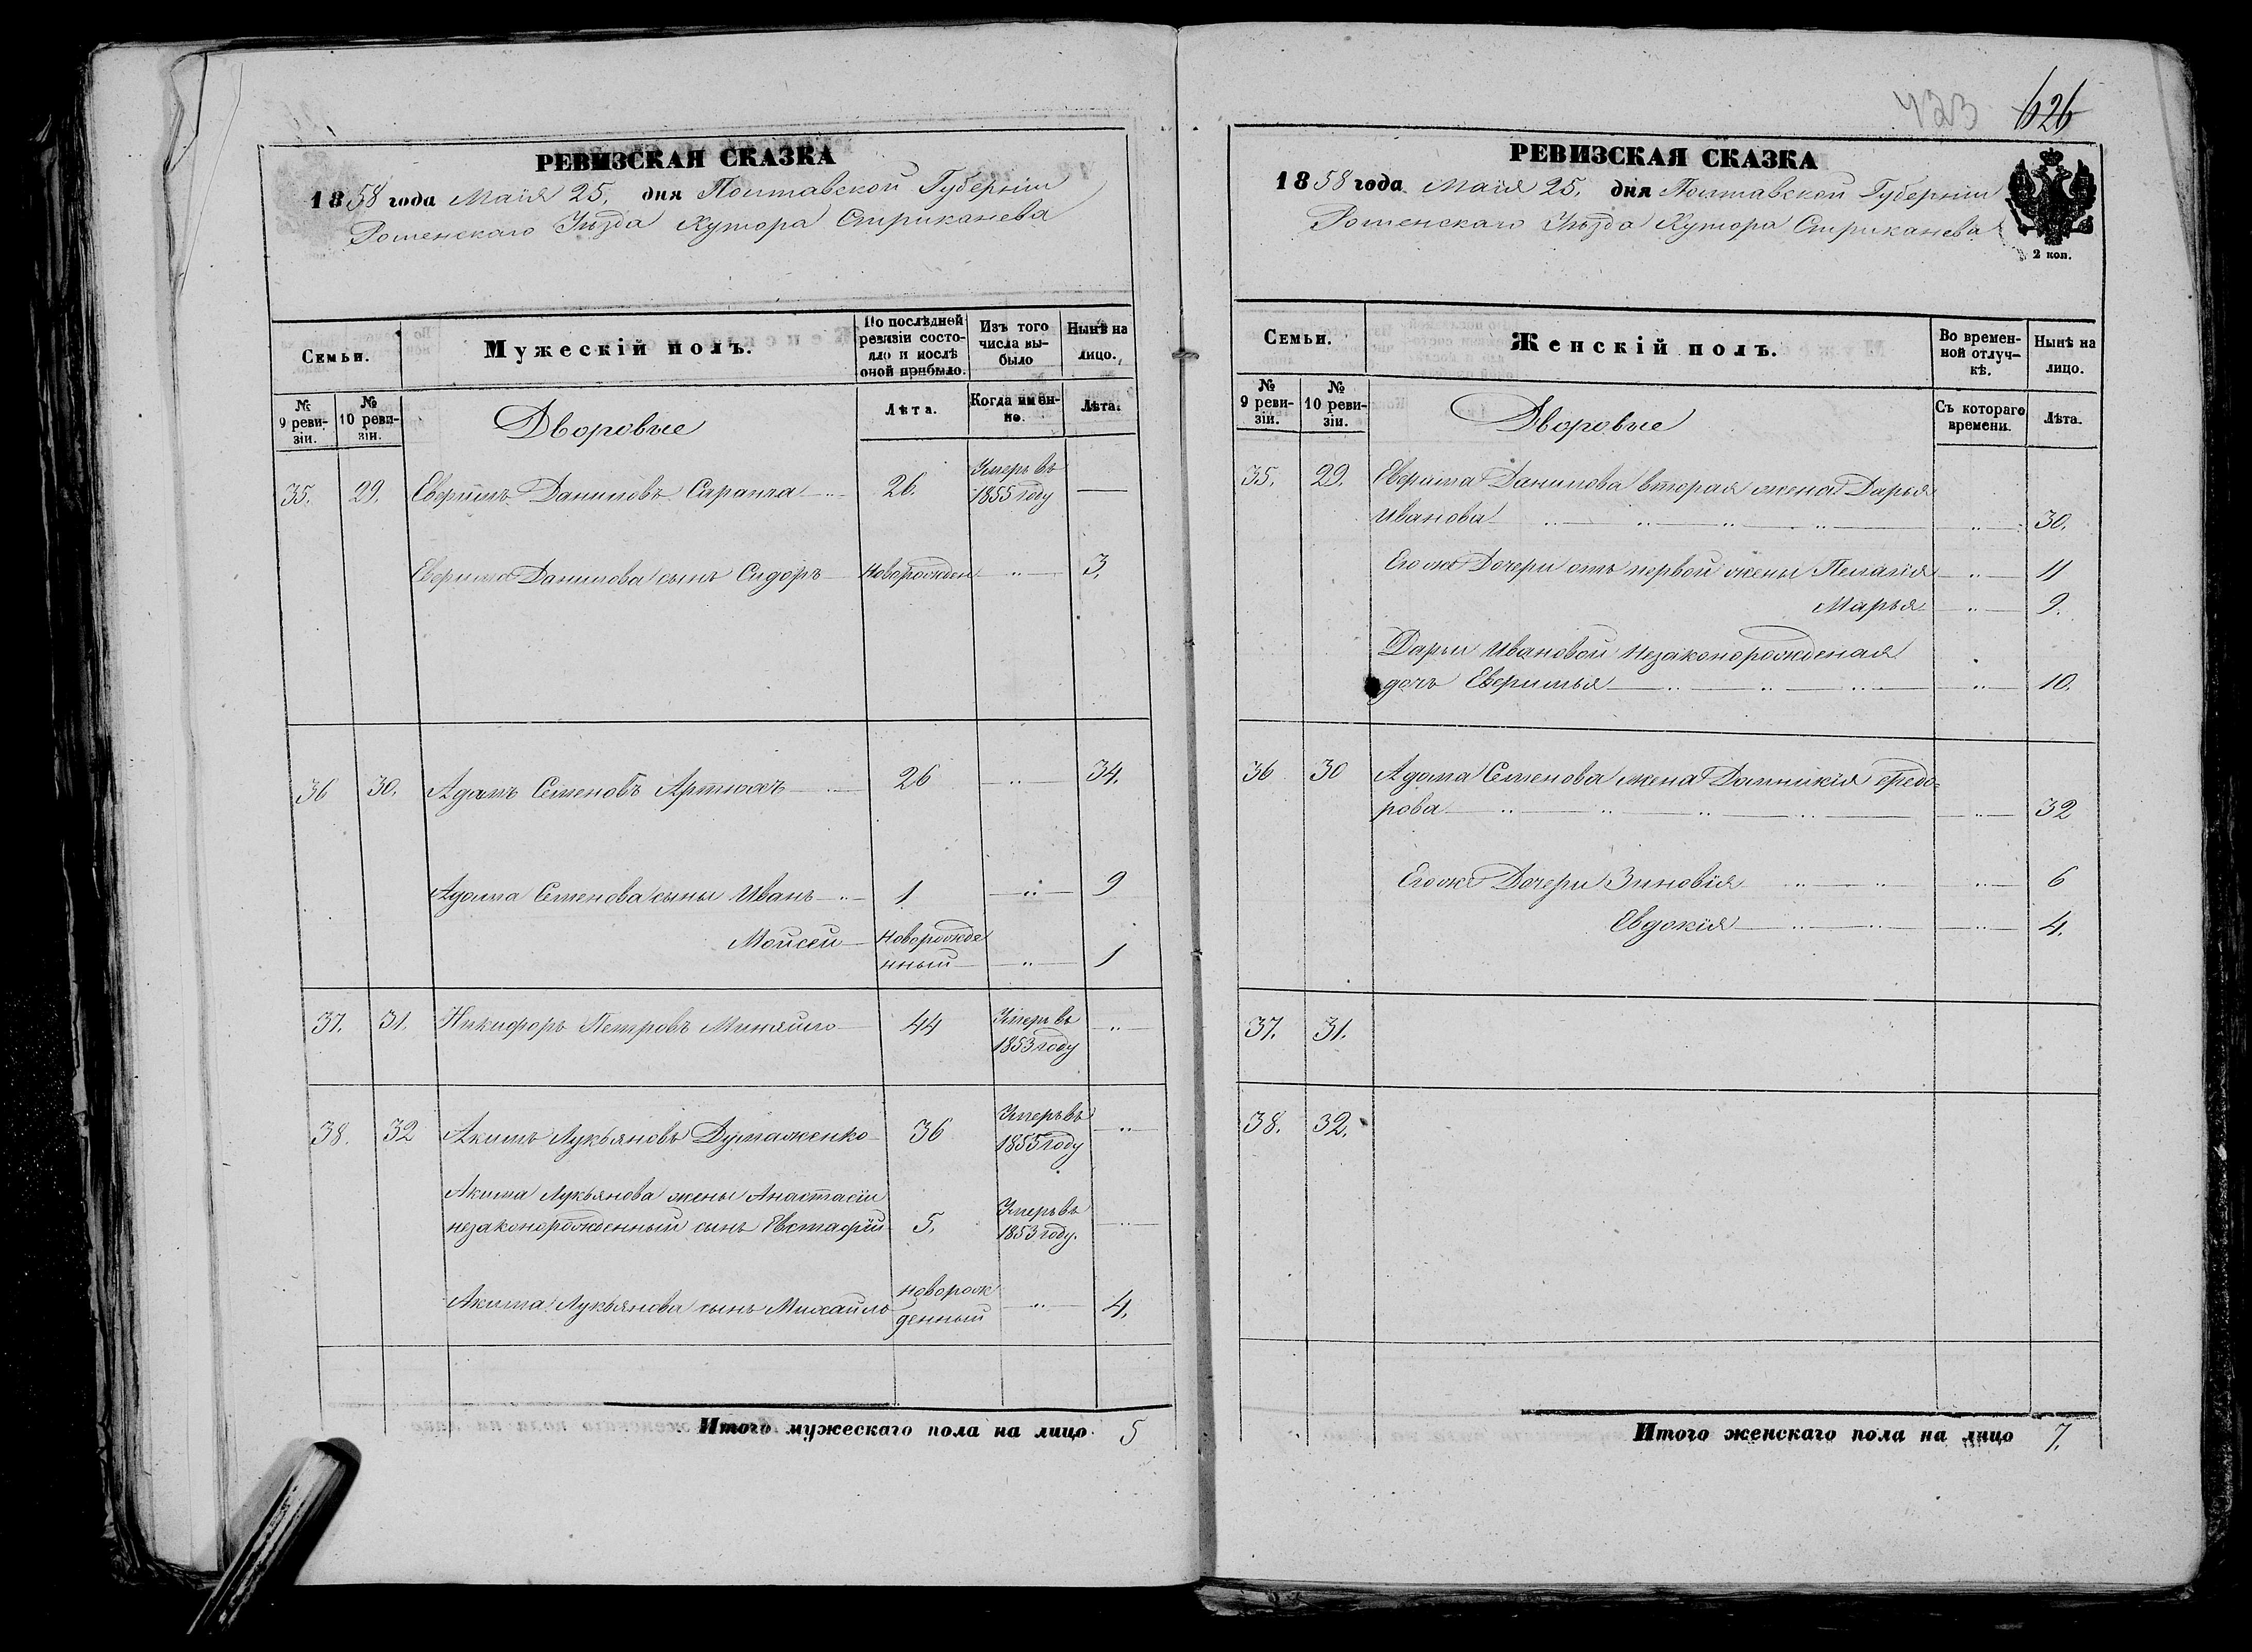 РЕВИЗСКАЯ СКАЗКА
1858 года Маія 25. дня Полтавской Губерніи
Роменскаго Уѣзда Хутора Стриканева
Семьи.
Мужескій полъ.
По послѣдней ревизіи состояло и послѣ оной прибыло.
Изъ того числа выбыло
Нынѣ на лицо.
№ 9 ревизіи.
№ 10 ревизіи.
Дворовые
Лѣта.
Когда именно.
Лѣта.
35. 29. Даниловъ 26. Умеръ въ 1855 году —
Данилова сынъ Сидоръ Новорожден 3.
36 30. Адамъ Семеновъ Артюхъ 26 34.
Адама Семенова сыны Иванъ 1 9
Мойсей Новорожде
нный 1
37. 31. Никифоръ Петровъ 44 Умеръ въ
1853 году
38. 32 Акимъ Лукьяновъ 36 Умеръ въ
1855 году
Акима Лукьянова жены Анастасіи
незаконорожденный сынъ Евстафій 5. Умеръ въ
1853 году.
Акима Лукьянова сынъ Михайло новорож
денный 4.
Итого мужескаго пола на лицо 5
423 626
РЕВИЗСКАЯ СКАЗКА
1858 года Маія 25. дня Полтавской Губерніи
Роменскаго Уѣзда Хутора Стриканева
2 коп.
Семьи.
Женскій полъ.
Во временной отлучкѣ.
Нынѣ на лицо.
№ 9 ревизіи.
№ 10 ревизіи.
Дворовые
Съ котораго времени.
Лѣта.
35. 29. Данилова вторая жена Дарья
Иванова 30.
Его же Дочери отъ первой жены Пелагія 11
Марья 9.
Дарьи Ивановой Незаконорожденая
дочь 10.
36 30 Адама Семенова жена Домникія Ѳедо=
рова 32
Его же Дочери Зиновія 6
Евдокія 4.
37. 31.
38. 32.
Итого женскаго пола на лицо 7.